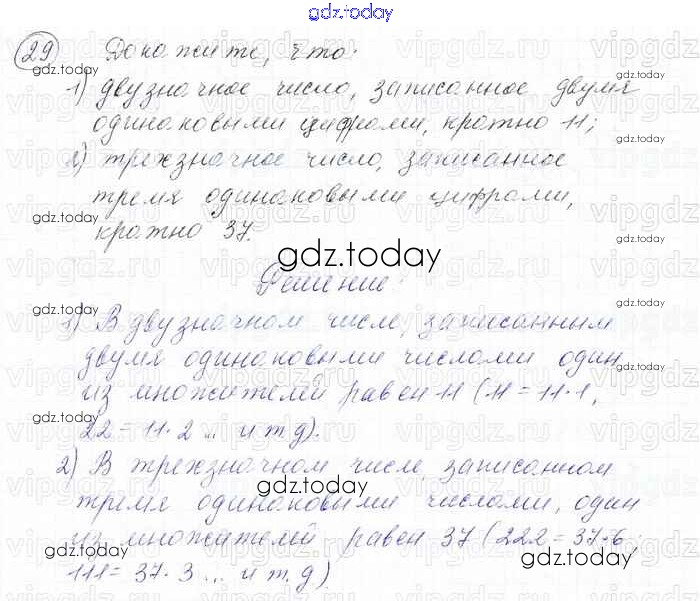 gdz.today
29 Докажите, что:
gdz.today
1) двузначное число, записанное двумя
одинаковыми цифрами, кратно 11;
gdz.today
2) трехзначное число, записанное
тремя одинаковыми цифрами,
gdz.today
кратно 37.
gdz.today
Решение:
gdz.today
1) В двузначном числе, записанным
двумя одинаковыми числами один
gdz.today
из множителей равен 11 (11 = 11·1,
gdz.today
22 = 11·2 ... и т.д).
2) В трехзначном числе, записанном
gdz.today
тремя одинаковыми числами, один
из множителей равен 37 (222 = 37·6;
gdz.today
gdz.today
111 = 37·3 ... и т.д)